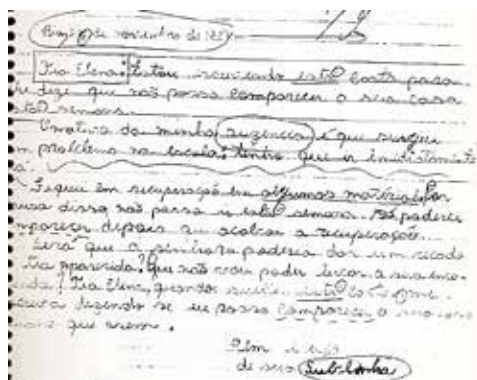 de novembro de
Tia Elena: Estou escrevendo esta carta para
dizer que não posso comparecer a sua casa
esta semana.
O motivo da minha auzencia é que surgiu
um problema na escola, tenho que ir imediatamente
Fiquei em recuperação em algumas matérias, Por
causa disso não posso ir esta semana. Só poderei
comparecer depois eu acabar a recuperação.
Será que a senhora poderia dar um recado
Tia Aparecida? que não vou poder levar a sua enco-
menda! Tia Elena, quando receber esta carta me
escreva dizendo se eu posso comparecer a sua casa
Um beijo
de sua Sublinha